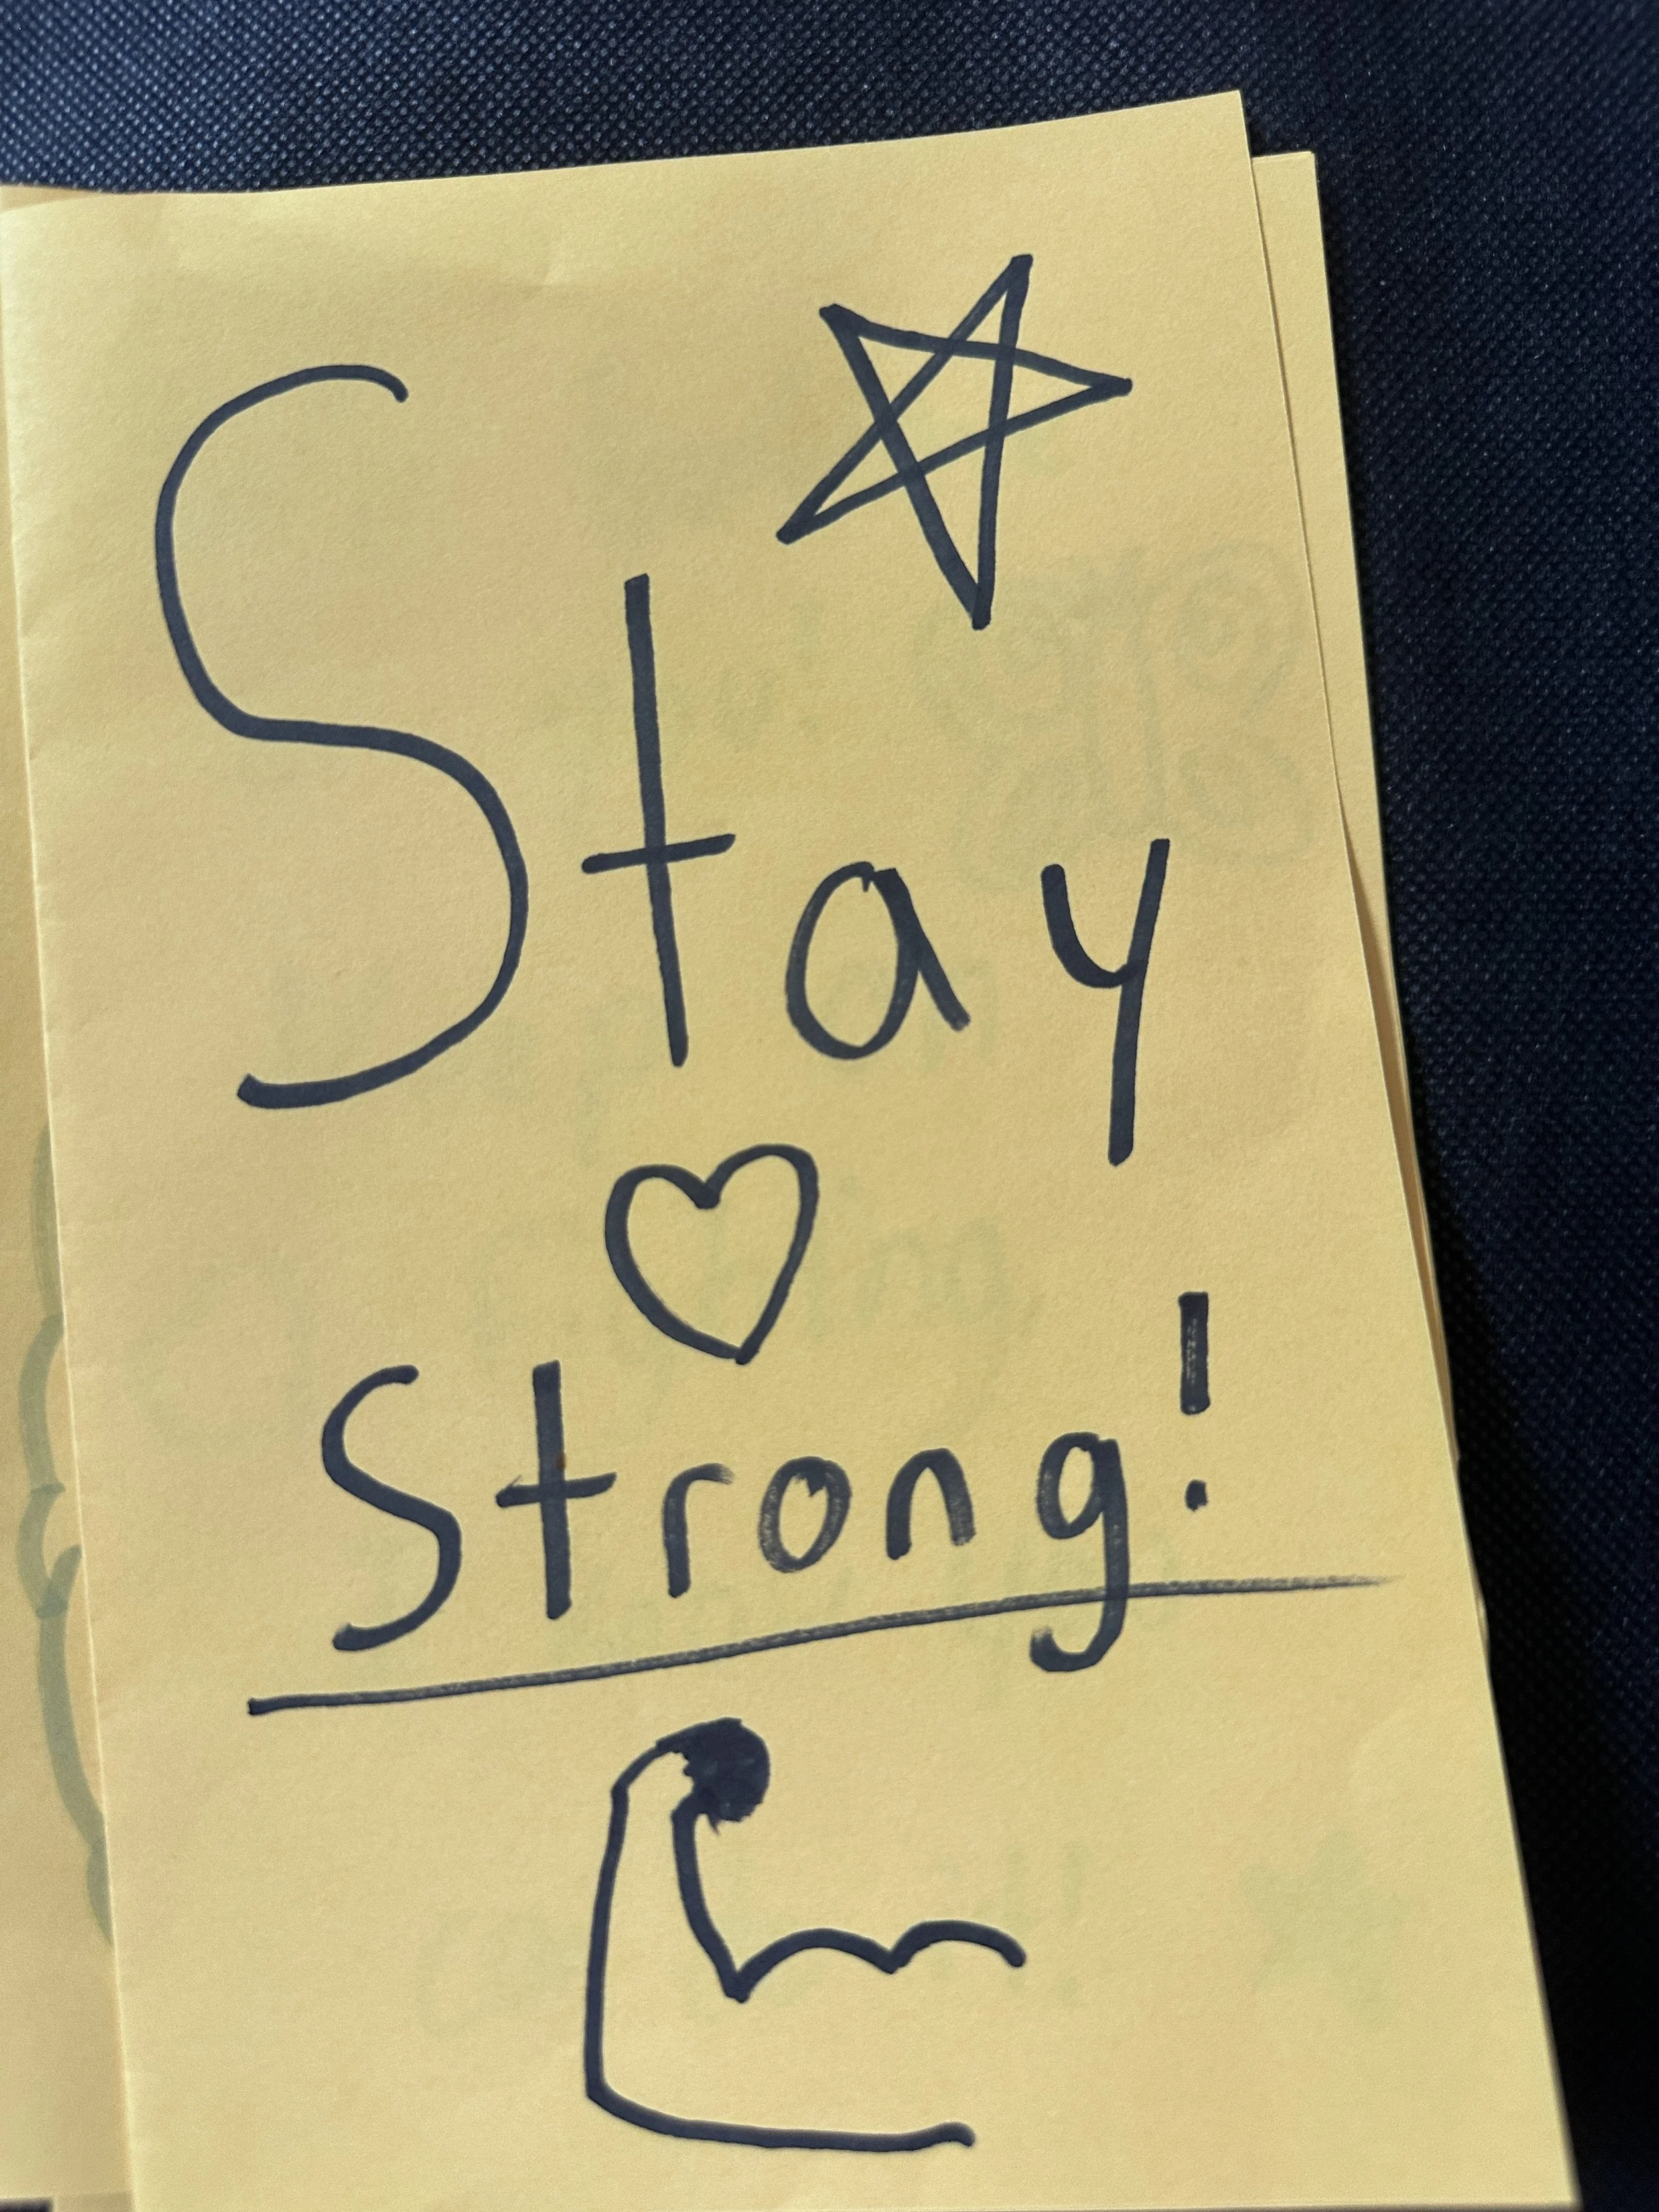 Stay
Strong!